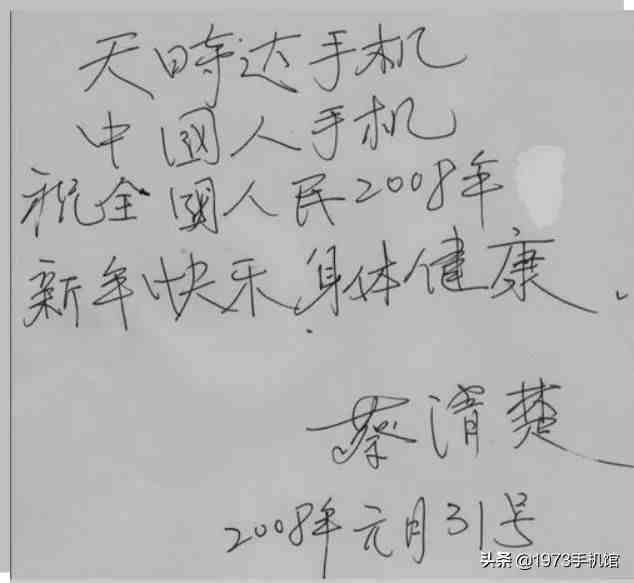 天時达手机
中國人手机
祝全國人民2008年
新年快乐,身体健康.
蔡清楚
2008年元月31号
头条 @1973手机馆